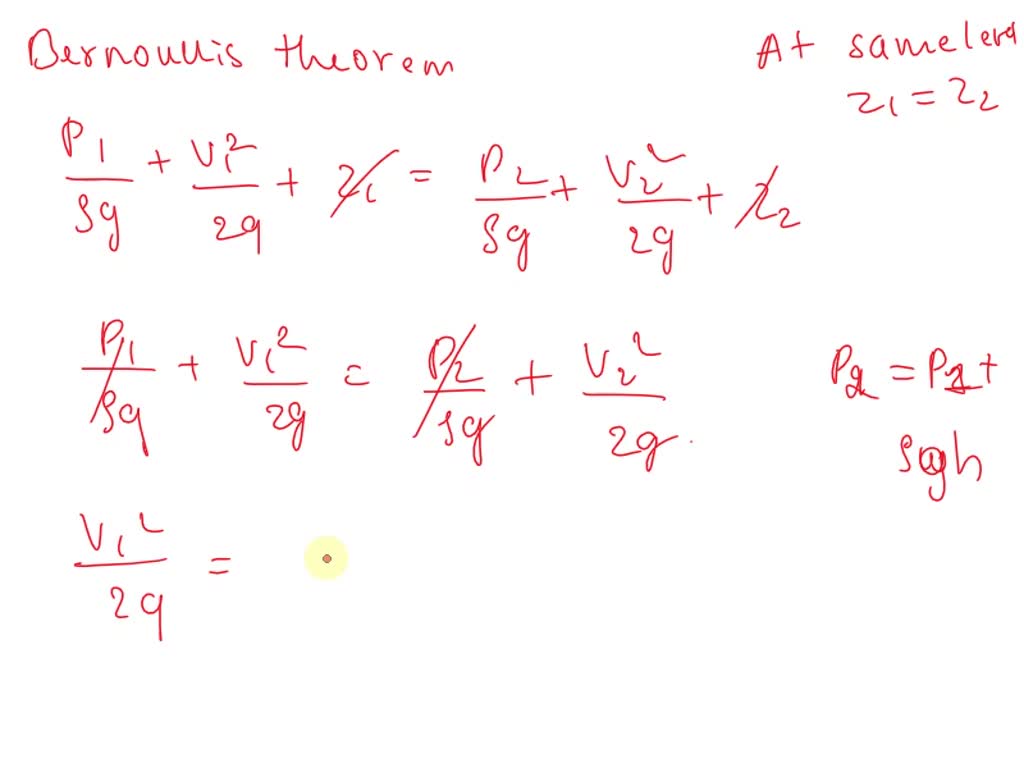 Bernoullis theorem
At same level
z1 = z2
P1/ρg + V1²/2g + z1 = P2/ρg + V2²/2g + z2
P1/ρg + V1²/2g = P2/ρg + V2²/2g
P2 = P1 +
ρgh
V1²/2g =